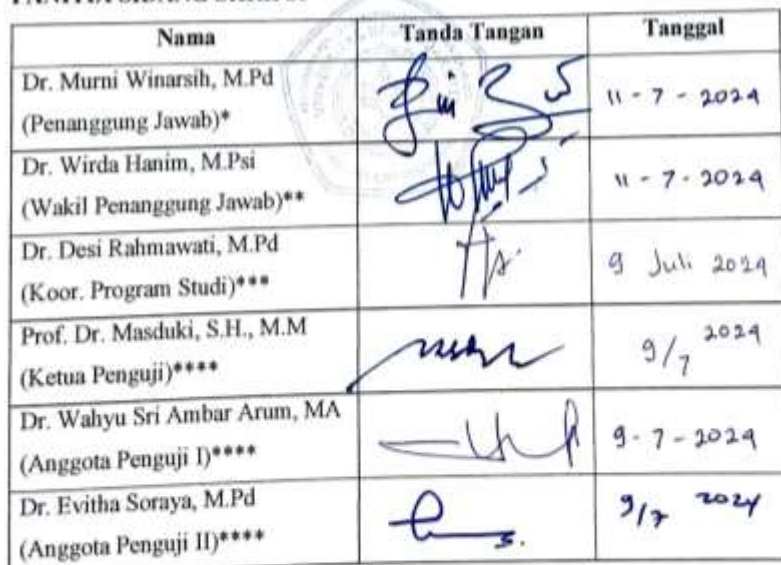 Nama Tanda Tangan Tanggal
Dr. Murni Winarsih, M.Pd
(Penanggung Jawab)* 11 - 7 - 2024
Dr. Wirda Hanim, M.Psi
(Wakil Penanggung Jawab)** 11 - 7 - 2024
Dr. Desi Rahmawati, M.Pd
(Koor. Program Studi)*** 9 Juli 2024
Prof. Dr. Masduki, S.H., M.M
(Ketua Penguji)**** 9/7 2024
Dr. Wahyu Sri Ambar Arum, MA
(Anggota Penguji I)**** 9 - 7 - 2024
Dr. Evitha Soraya, M.Pd
(Anggota Penguji II)**** 9/7 2024